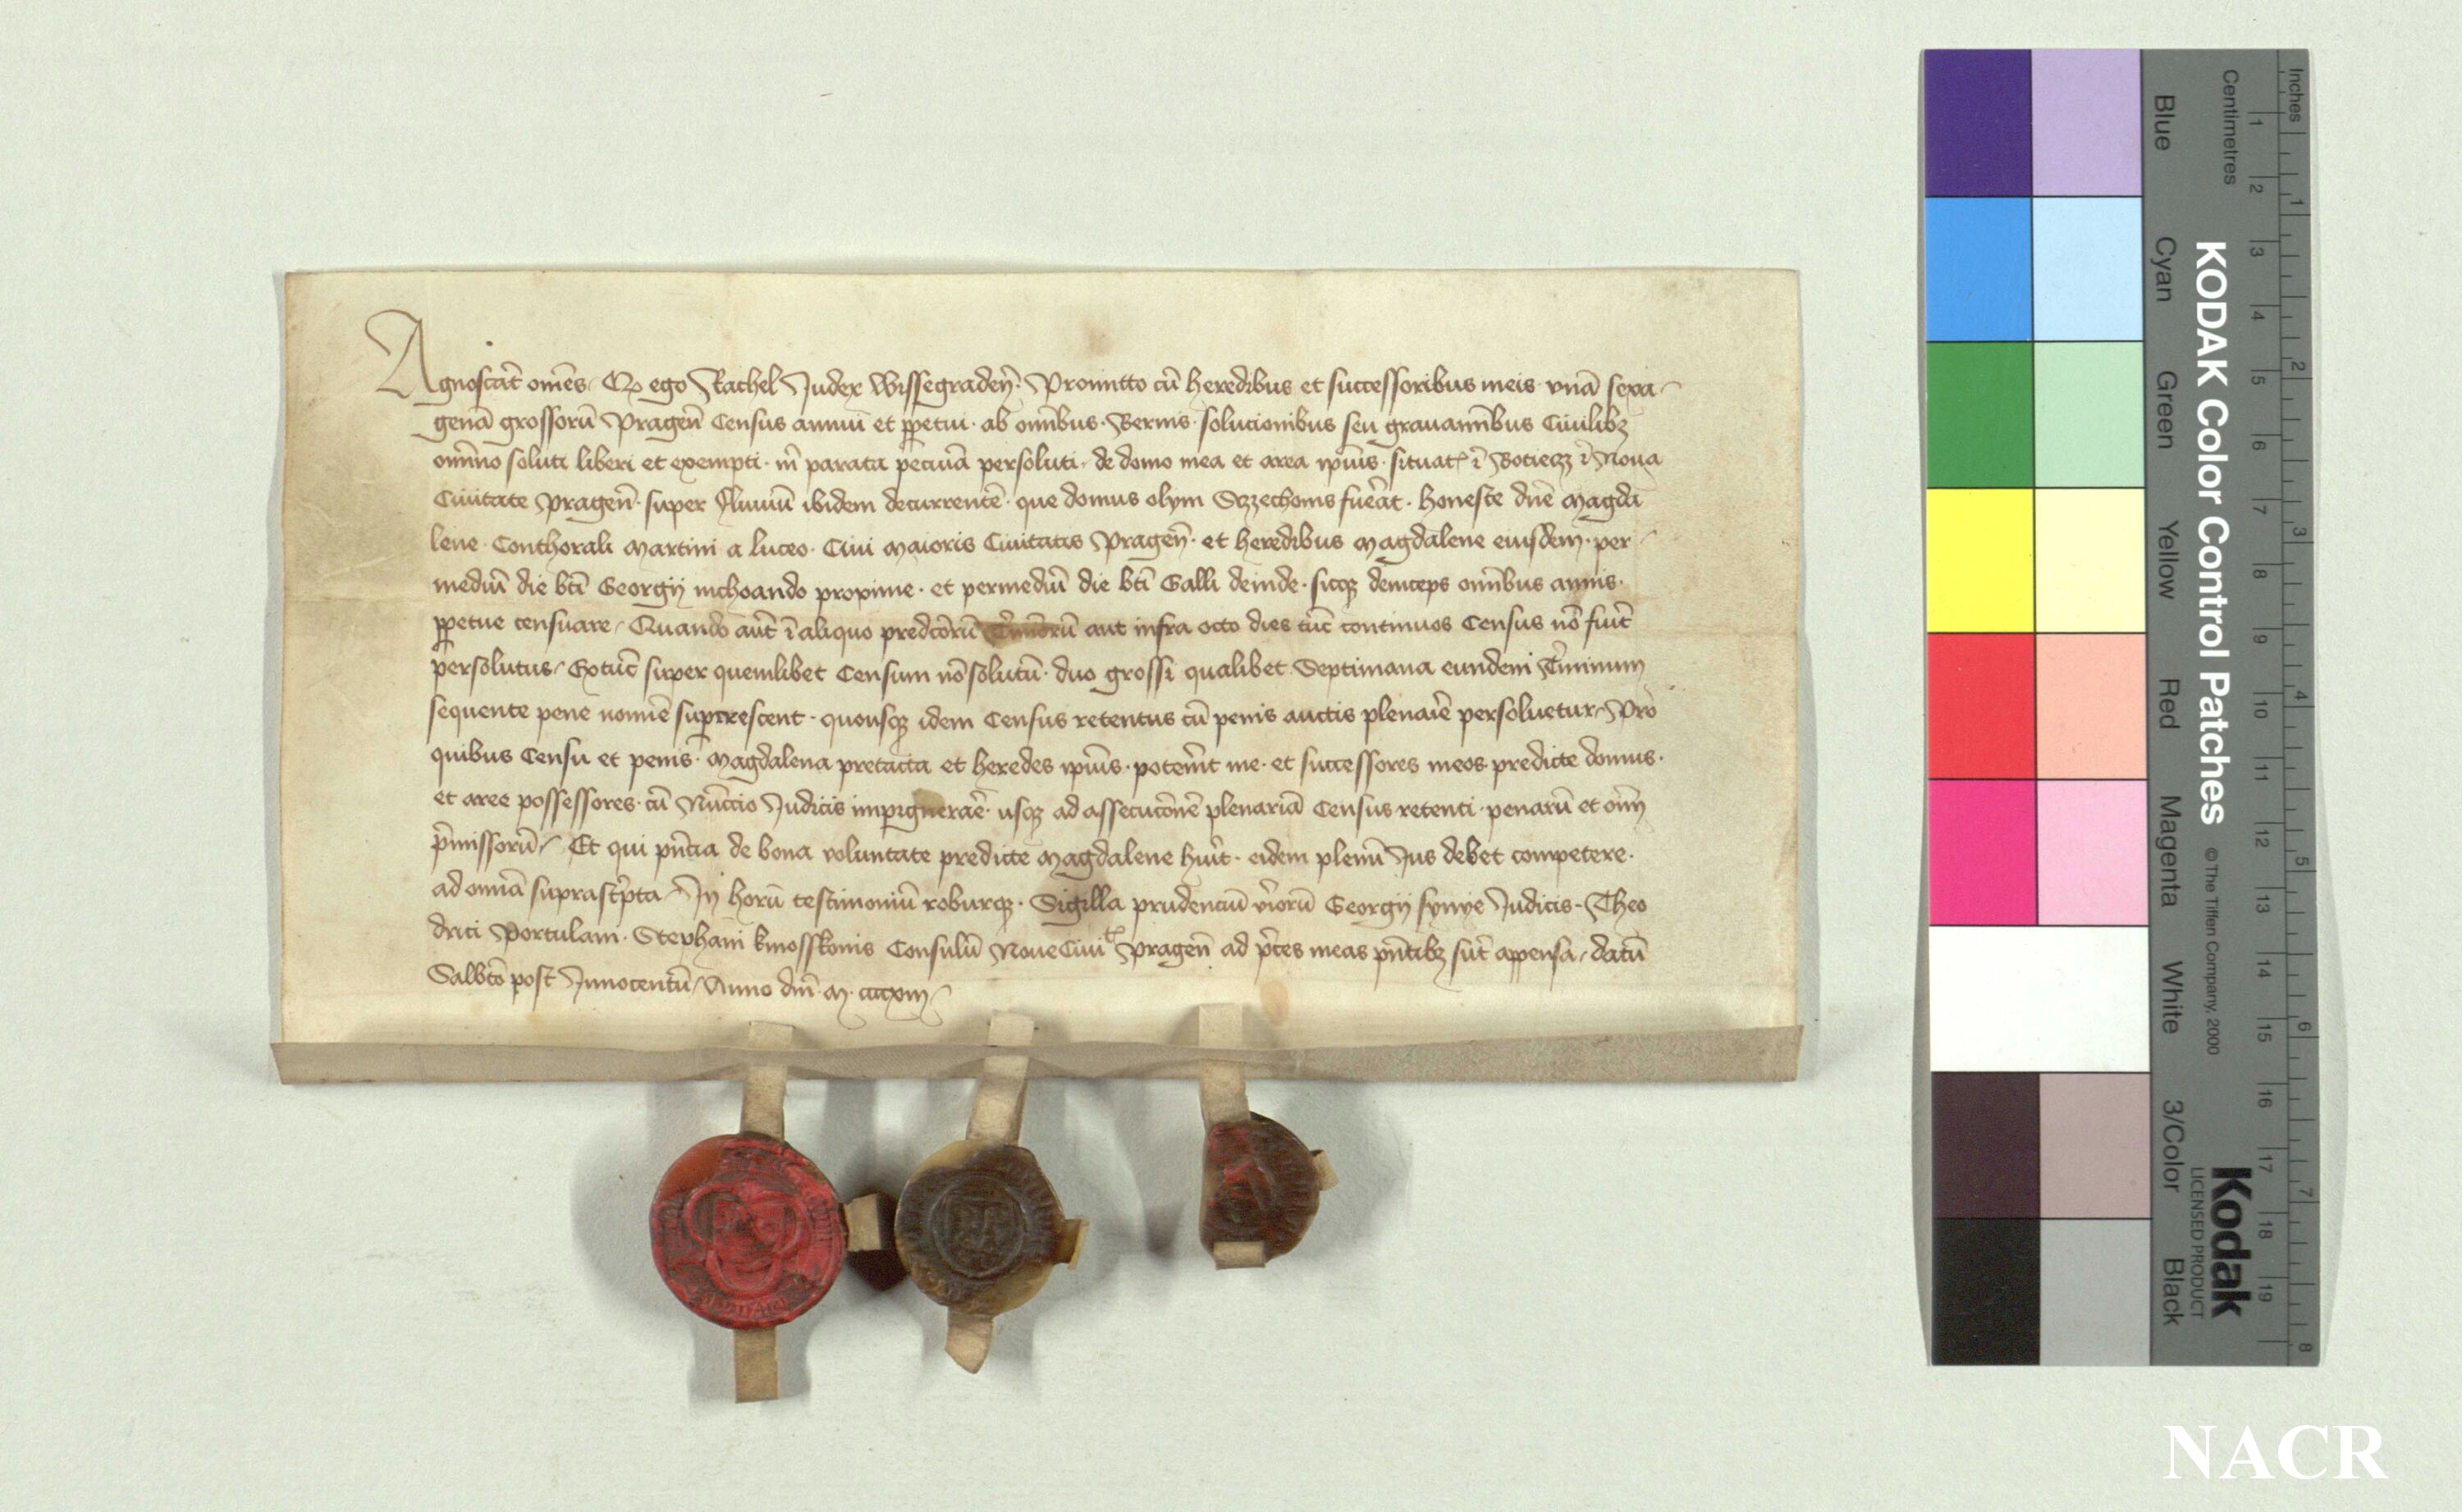 Agnoscāt om̄es Qd ego Rachel Judex Wissegradeñ. Promitto cū heredibus et successoribus meis vnā sexa
genā grossorū Pragen̄ Census annui et ꝑpetui. ab om̄ibus. Bernis. solucionibus seu grauamībus Ciuilibꝫ
om̄ino soluti liberi et exempti. in parata pecuīa persoluti. de domo mea et area ip̄ius. situatꝭ ī Boticzz ī Noua
Ciuitate Pragen̄. super fluuiū ibidem decurrentē. que domus olym fuerāt. honeste dn̄e Magda
lene. Conthorali Martini a luceo. Ciui Maioris Ciuitatis Pragen̄. et heredibus Magdalene eiusdem. per
mediū die bt̄i Georgij inchoando proxime. et permediū die bt̄i Galli deinde. sicqꝫ deinceps om̄ibus annis.
ꝑpetue censuare Quando aut̄ ī aliquo predcōrū t̄minorū aut infra octo dies tūc continuos Census nō fuīt
persolutus Extūc super quemlibet Censum nōsolutū. duo grossi qualibet Septimana eundem T̄minum
sequente pene nomīe suꝑcrescent. quousqꝫ idem Census retentus cū penis auctis plenarīe persoluetur Pro
quibus Censu et penis. Magdalena pretacta et heredes ip̄ius. potērīt me. et successores meos predicte domus.
et aree possessores. cū Nūccio Judicis impignerarē. usqꝫ ad assecucōnē plenariā Census retenti. penarū et om̄
p̄missorū Et qui pn̄cia de bona voluntate predicte Magdalene hūīt. eidem plenū Jus debet competere.
ad omīa suprasc̄pta Jn horū testimoniū roburqꝫ. Sigilla prudenciū virorū Georgij Judicis Theo
drici Portulani. Stephani kmosskonis Consulū Noue Ciuitꝭ Pragen̄ ad p̄ces meas pn̄tibꝫ sūt appensa datū
Sabbto post Jnnocentū Anno dn̄i. M.
Inches
Centimetres
Blue
Cyan
Green
Yellow
Red
Magenta
White
3/Color
Black
KODAK Color Control Patches
© The Tiffen Company, 2000
Kodak
LICENSED PRODUCT
1 2 3 4 5 6 7 8 9 10 11 12 13 14 15 16 17 18 19
1 2 3 4 5 6 7 8
NACR